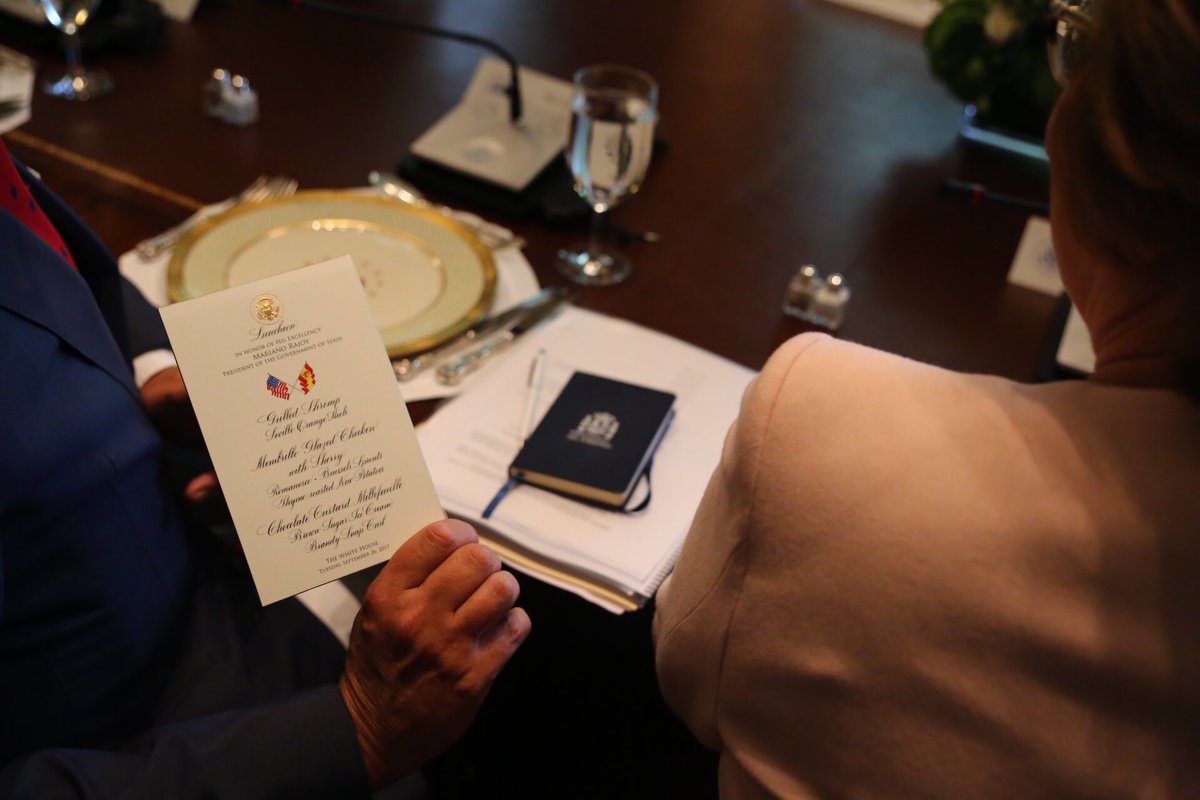 Luncheon
IN HONOR OF HIS EXCELLENCY
MARIANO RAJOY
PRESIDENT OF THE GOVERNMENT OF SPAIN
Grilled Shrimp
Seville Orange Salt
Membrillo Glazed Chicken
with Sherry
Romanesco - Brussels Sprouts
Thyme-roasted New Potatoes
Chocolate Custard Millefeuille
Brown Sugar Ice Cream
Brandy Snap Curl
THE WHITE HOUSE
TUESDAY, SEPTEMBER 26, 2017